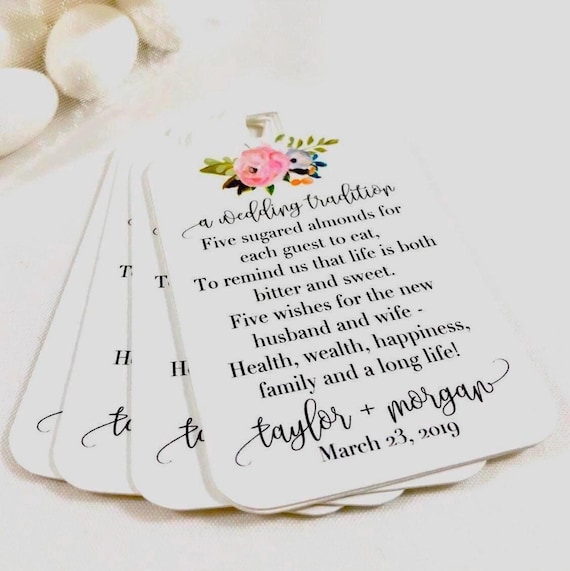 a wedding tradition
Five sugared almonds for
each guest to eat,
To remind us that life is both
bitter and sweet.
Five wishes for the new
husband and wife -
Health, wealth, happiness,
family and a long life!
taylor + morgan
March 23, 2019